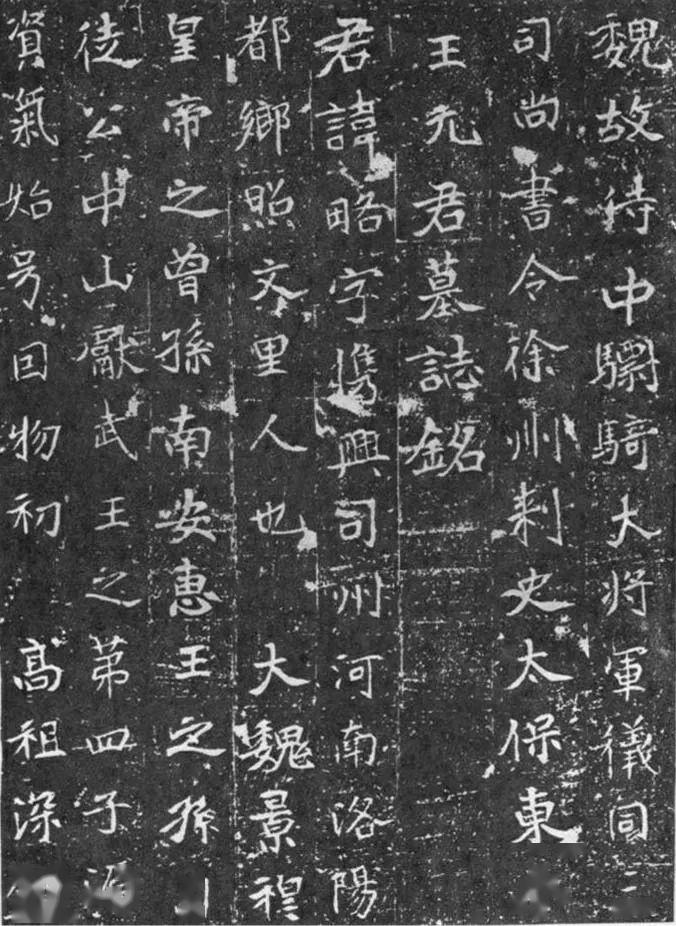 魏故侍中驃騎大将軍儀同
司尚書令徐州刺史太保東
王元君墓誌銘
君諱略字儁興司州河南洛陽
都鄉照文里人也 大魏景穆
皇帝之曾孫南安惠王之孫
徒公中山獻武王之第四子
資氣始号囙物初 高祖深